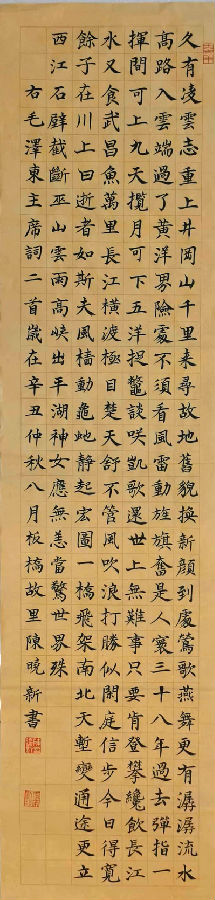 久有凌雲志重上井岡山千里来尋故地舊貌換新顔到處鶯歌燕舞更有潺潺流水
高路入雲端過了黄洋界險處不須看風雷動旌旗奮是人寰三十八年過去彈指一
揮間可上九天攬月可下五洋捉鼈談咲凱歌還世上無難事只要肯登攀纔飲長江
水又食武昌魚萬里長江横渡極目楚天舒不管風吹浪打勝似閒庭信步今日得寬
餘子在川上曰逝者如斯夫風檣動龜虵静起宏圖一橋飛架南北天塹變通途更立
西江石壁截斷巫山雲雨高峡出平湖神女應無恙當驚世界殊
右毛澤東主席詞二首歲在辛丑仲秋八月板橋故里陳曉新書